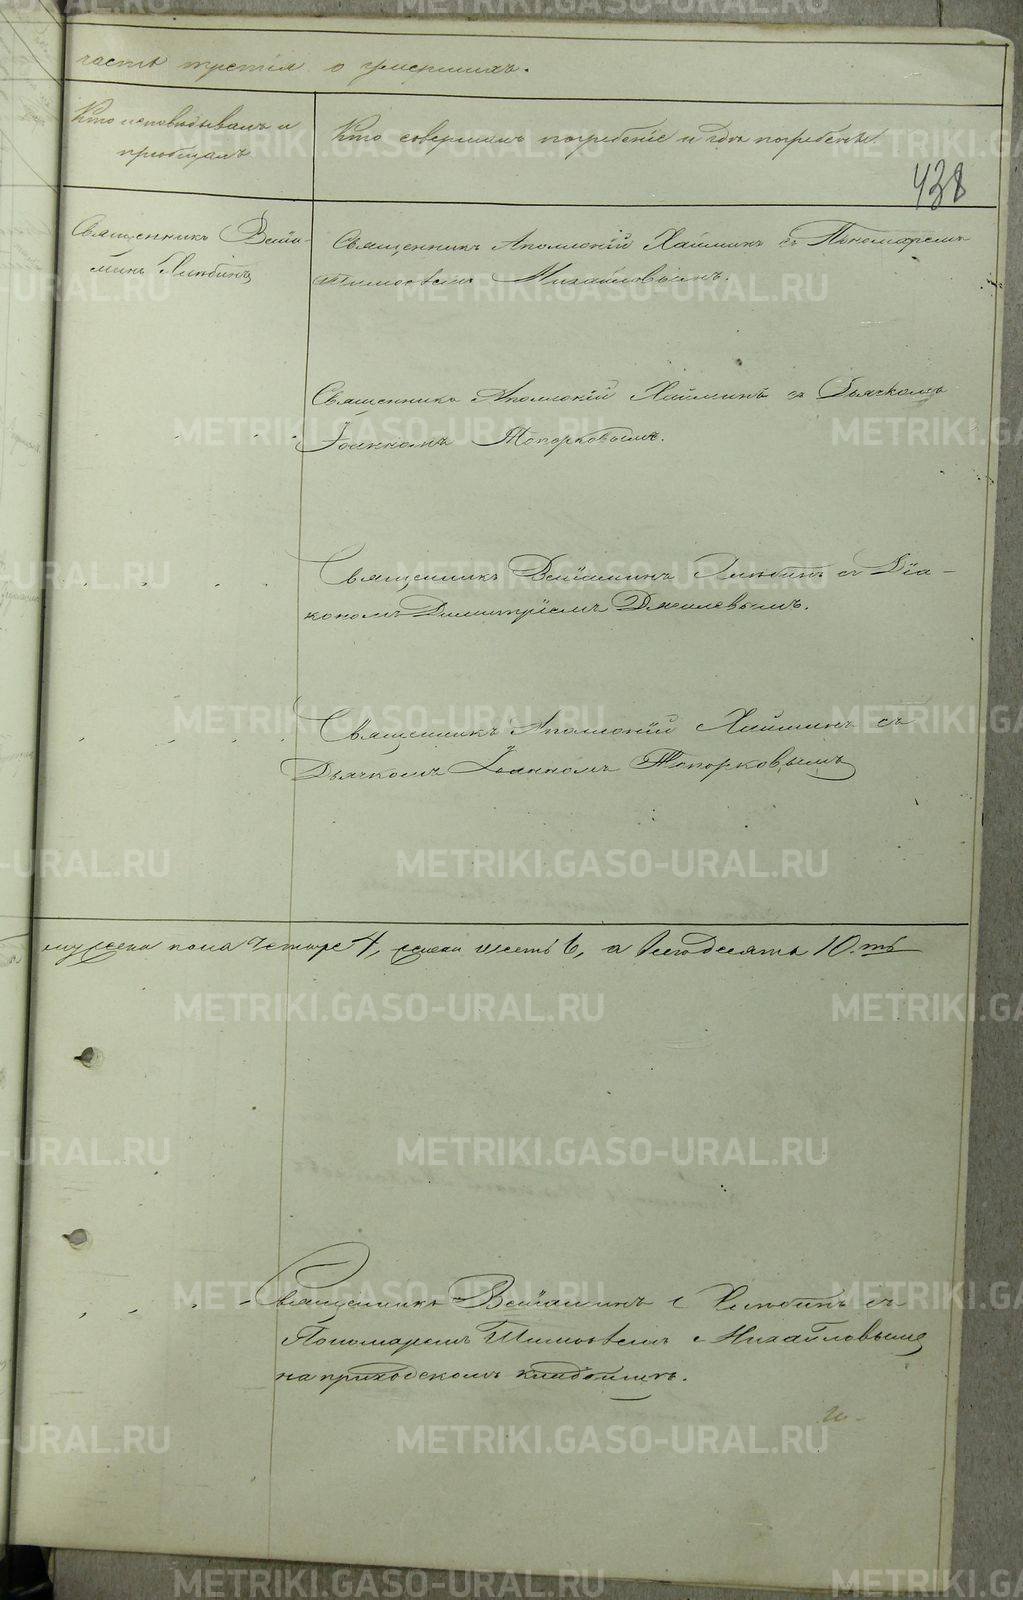 часть третія о умершихъ.
Кто исповѣдывалъ и
пріобщалъ
Кто совершалъ погребеніе и гдѣ погребены.
438
Священникъ Веніа-
минъ
Священникъ Аполлоній Хаймин съ Пономаремъ
Тимофеемъ Михайловымъ.
Священникъ Аполлоній Хайминъ съ Дьячкомъ
Іоанномъ Топорковымъ.
Священникъ Веніаминъ съ Діа-
кономъ Димитріемъ
Священникъ Аполлоній Хайминъ съ
Дьячкомъ Іоанномъ Топорковымъ
мужеска пола четыре 4, женска шесть 6, а всего десять 10.ть
Священникъ Веніаминъ съ
Пономаремъ Тимофеемъ Михайловымъ
на приходскомъ кладбищѣ.
METRIKI.GASO-URAL.RU